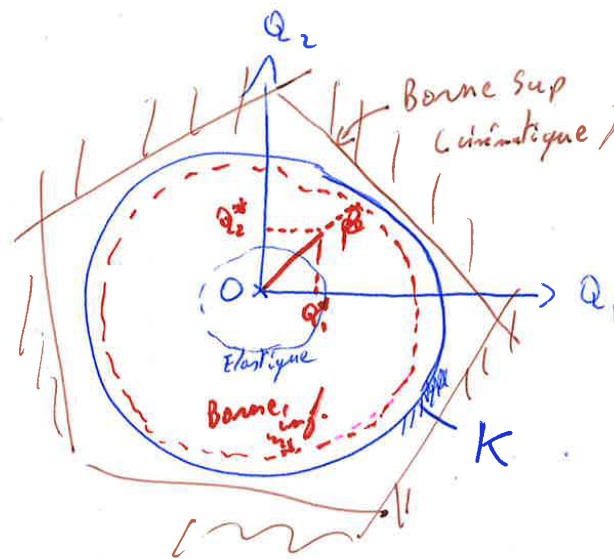 Q₂
Borne Sup
Cinématique
Q₂*
O
Q₁*
Q₁
Elastique
Borne inf.
K